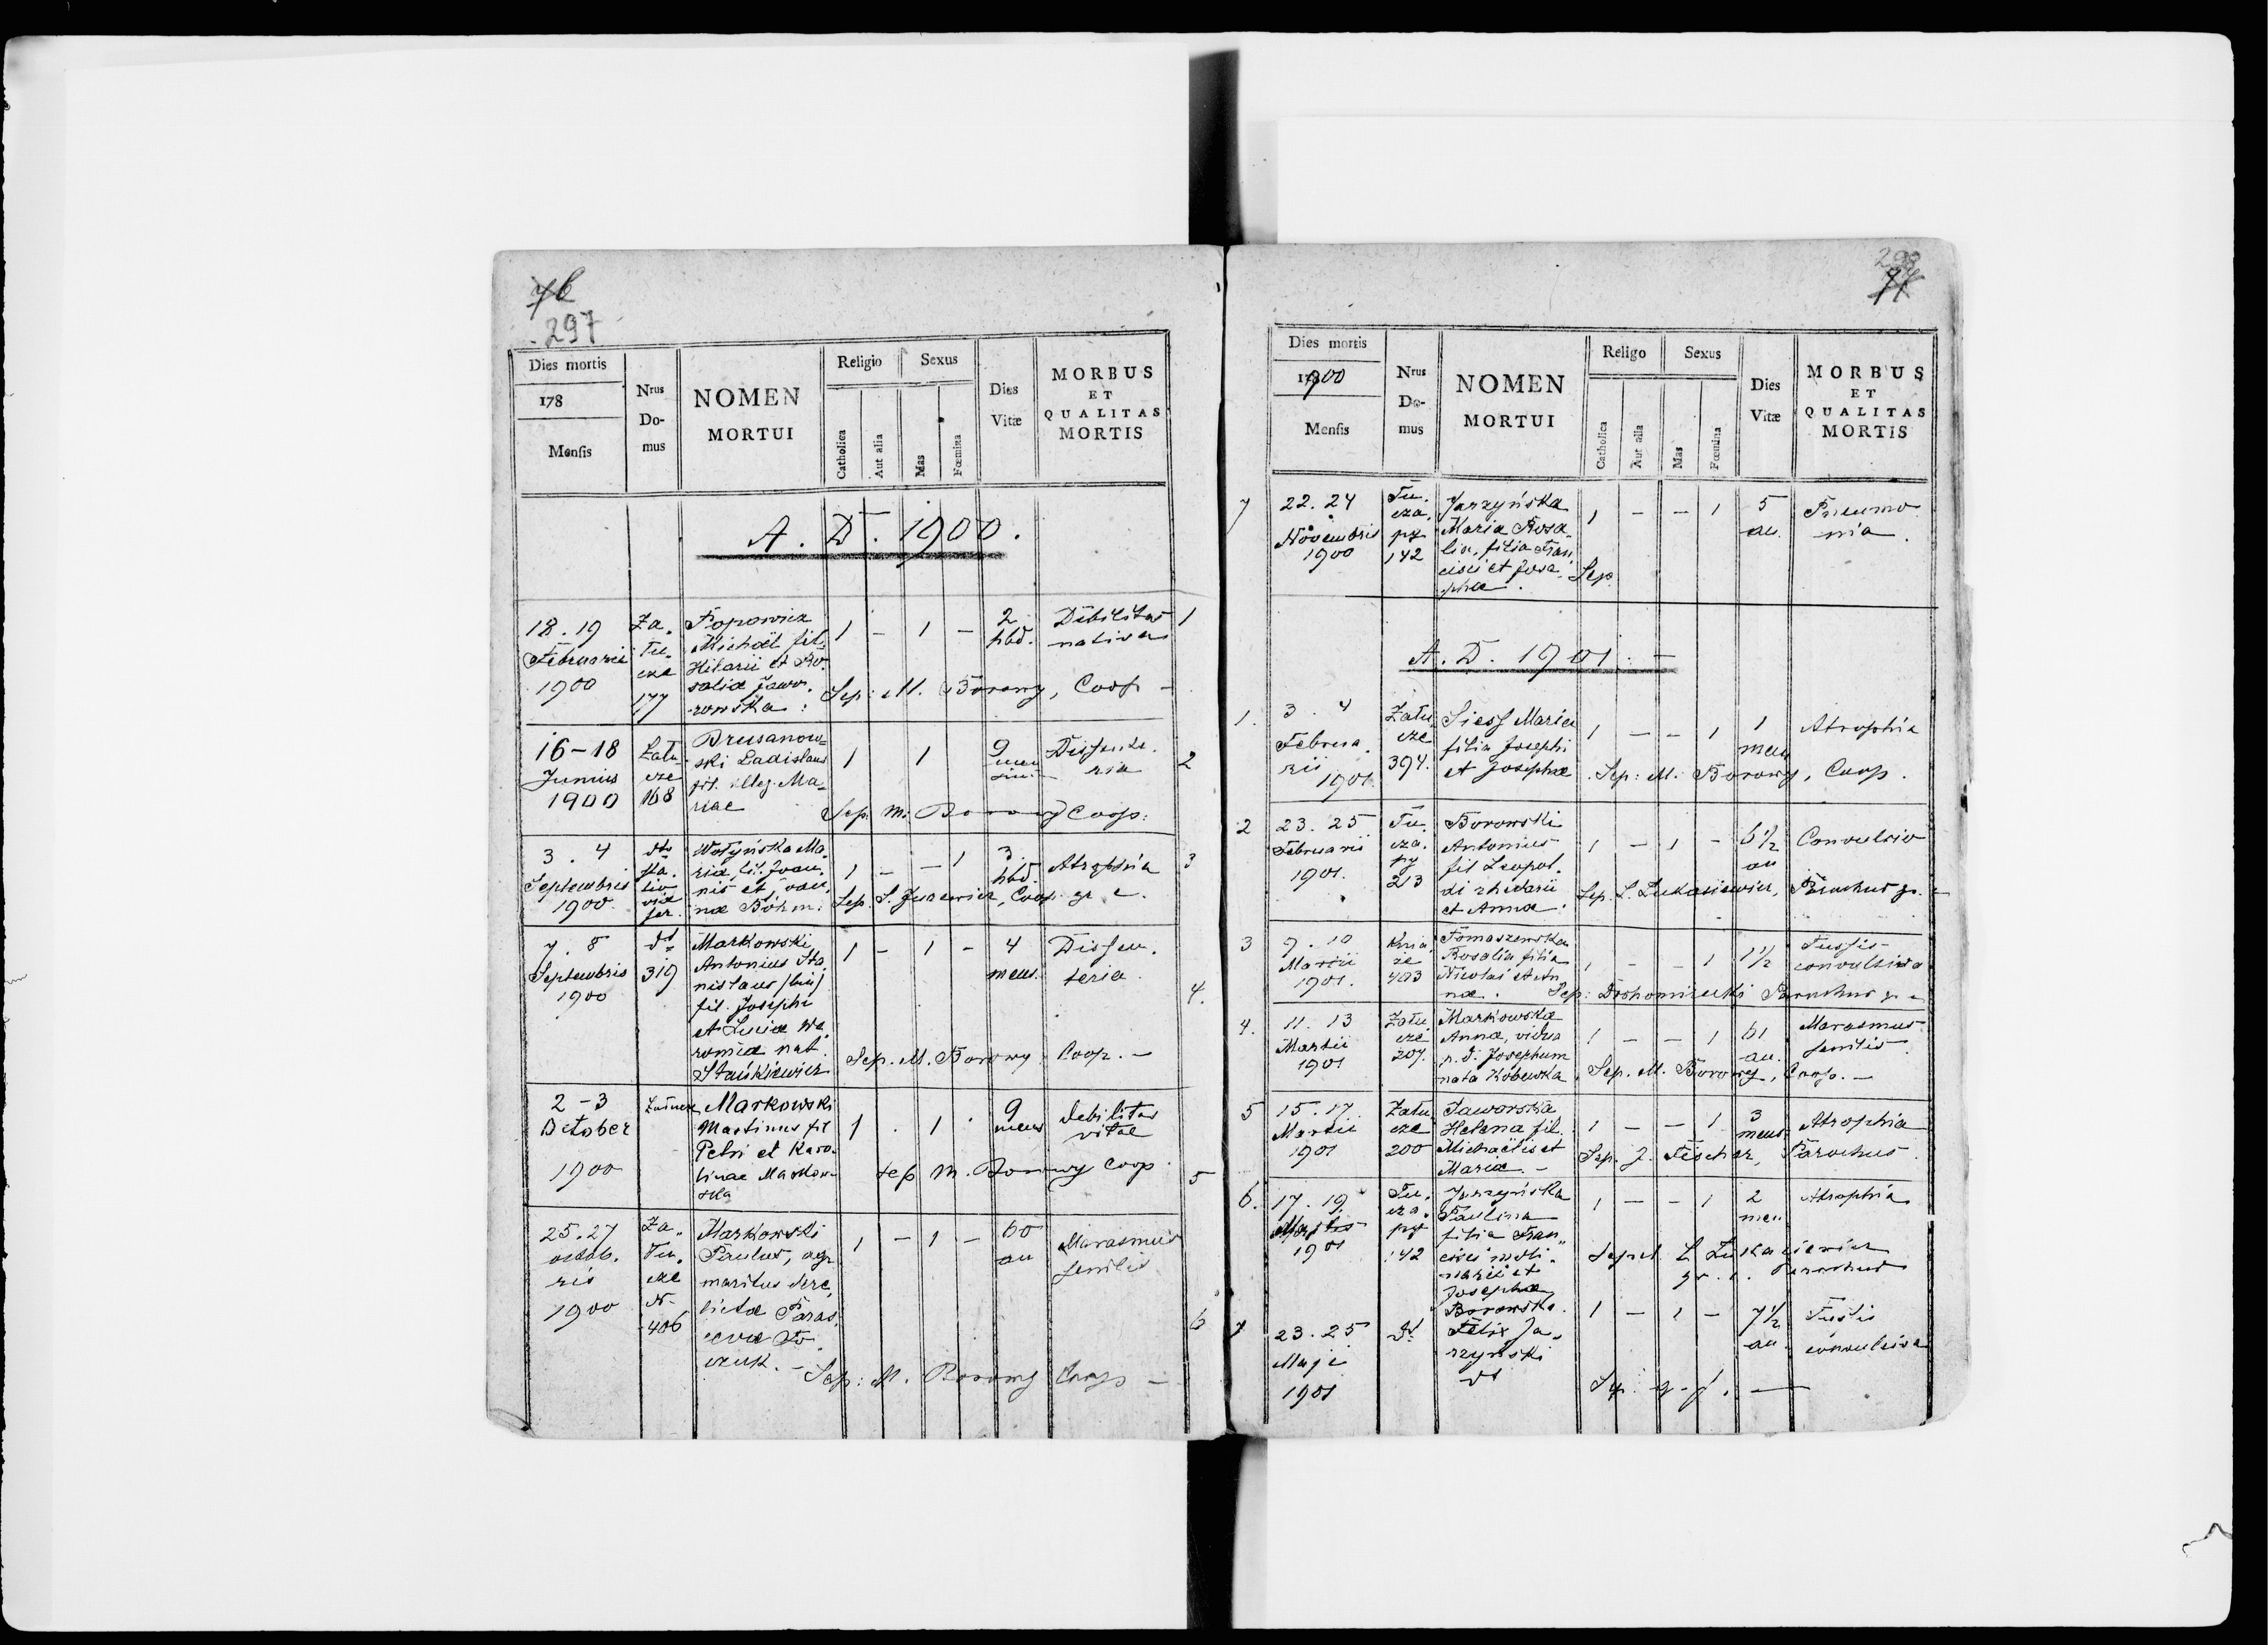 76
297
Dies mortis
178
Mensis
Nrus
Do-
mus
NOMEN
MORTUI
Religio
Catholica
Aut alia
Sexus
Mas
Fœmina
Dies
Vitæ
MORBUS
ET
QUALITAS
MORTIS
A. D. 1900.
18. 19
Februarii
1900
Za-
łu-
cze
177
Popowicz
Michael fil.
Hilarii et Ro-
salia Jawo-
rowska
1 - 1 -
2
hbd.
Debilitas
nativa
1
Sep: M. Borowy, Coop -
16-18
Junius
1900
Zału-
cze
168
Brusanow-
ski Ladislaus
fil. illeg. Ma-
riae
1 1
9
men
Dissente-
ria
2
Sep. M. Borowy Coop:
3. 4
Septembris
1900
dto
sta-
tio
viæ
fer.
Wołyńska Ma-
ria, fil. Joan-
nis et Joan-
næ Böhm.
1 - - 1
3
hbd.
Atrophia
3
Sep. S. Juzewicz, Coop. gr. c.
7. 8
Septembris
1900
dto
319
Markowski
Antonius Sta
nislaus /bin/
fil. Josephi
et Luciæ We-
romiæ nat.
Stańkiewicz
1 - 1 -
4
mens.
Dissen-
teria
4.
Sep. M. Borowy Coop. -
2-3
October
1900
Załucze
Markowski
Martinus fil
Petri et Karo-
linae Markow-
ska
1 . 1 .
9
mens
debilitas
vitae
5
sep M. Borowy Coop.
25. 27
octob-
ris
1900
Za-
łu-
cze
N-
406
Markowski
Paulus, agr
maritus dere-
lictæ Paras-
cevæ To-
czuk. -
1 - 1 -
60
an
Marasmus
senilis
6
Sep: M. Borowy Coop -
298
77
Dies mortis
1900
Mensis
Nrus
Do-
mus
NOMEN
MORTUI
Religo
Catholica
Aut alia
Sexus
Mas
Fœmina
Dies
Vitæ
MORBUS
ET
QUALITAS
MORTIS
7
22. 24
Novembris
1900
Tu-
cza-
py
142
Jarzyńska
Maria Rosa-
lia, filia Fran
cisci et Jose-
phæ.
1 - - 1
5
an.
Pneumo
nia.
Sep.
A. D. 1901. -
1.
3. 4
Februa-
rii
1901
Zału
cze
394.
Siess Maria
filia Josephi
et Josephæ
1 - - 1
1
men
Atrophia
Sep: M. Borowy, Coop.
2
23. 25
Februarii
1901.
Tu-
cza-
py
213
Borowski
Antonius
fil Leopol-
di rhedarii
et Annæ.
1 - 1 -
6 1/2
an
Convulsio
Sep. L. Łukasiewicz, Parochus gr. c
3
9. 10
Martii
1901.
Knia
że
403
Tomaszewska
Rosalia filia
Nicolai et An
næ.
1 - - 1
1 1/2
Tussis
convulsiva
Sep: Drohomirecki Parochus gr c
4.
11. 13
Martii
1901
Zału
cze
207.
Markowska
Anna, vidua
p. d. Josephum
nata Kobewka
1 - - 1
61
an.
Marasmus
senilis
Sep. M. Borowy, Coop. -
5
15. 17.
Martii
1901
Zału
cze
200
Jaworska
Helena fil.
Michaëlis et
Mariæ. -
1 - - 1
3
mens
Atrophia
Sep. J. Fischer, Parochus
6.
17. 19.
Martii
1901
Tu-
cza-
py
142
Jarzyńska
Paulina
filia Fran-
cisci moli-
narii et
Josephæ
Borowska.
1 - - 1
2
men
Atrophia
Sepel. L Łukasiewicz
gr. c. Parochus
7
23. 25
Maji
1901
dto
Felix Ja-
rzyński
dt
1 - 1 -
7 1/2
an.
Tussis
convulsiva
Sep. g. f. -